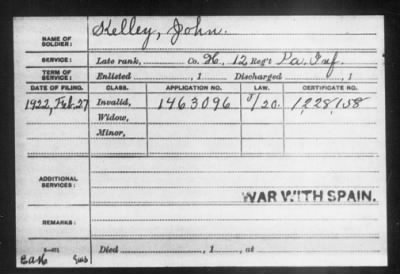 NAME OF SOLDIER: Kelley, John.
SERVICE: Late rank, Co. H, 12 Reg't Pa. Inf.
TERM OF SERVICE: Enlisted , 1 Discharged , 1
DATE OF FILING. CLASS. APPLICATION NO. LAW. CERTIFICATE NO.
1922, Feb. 27 Invalid, 1463096 1228158
Widow,
Minor,
ADDITIONAL SERVICES:
WAR WITH SPAIN.
REMARKS:
Died , 1 , at